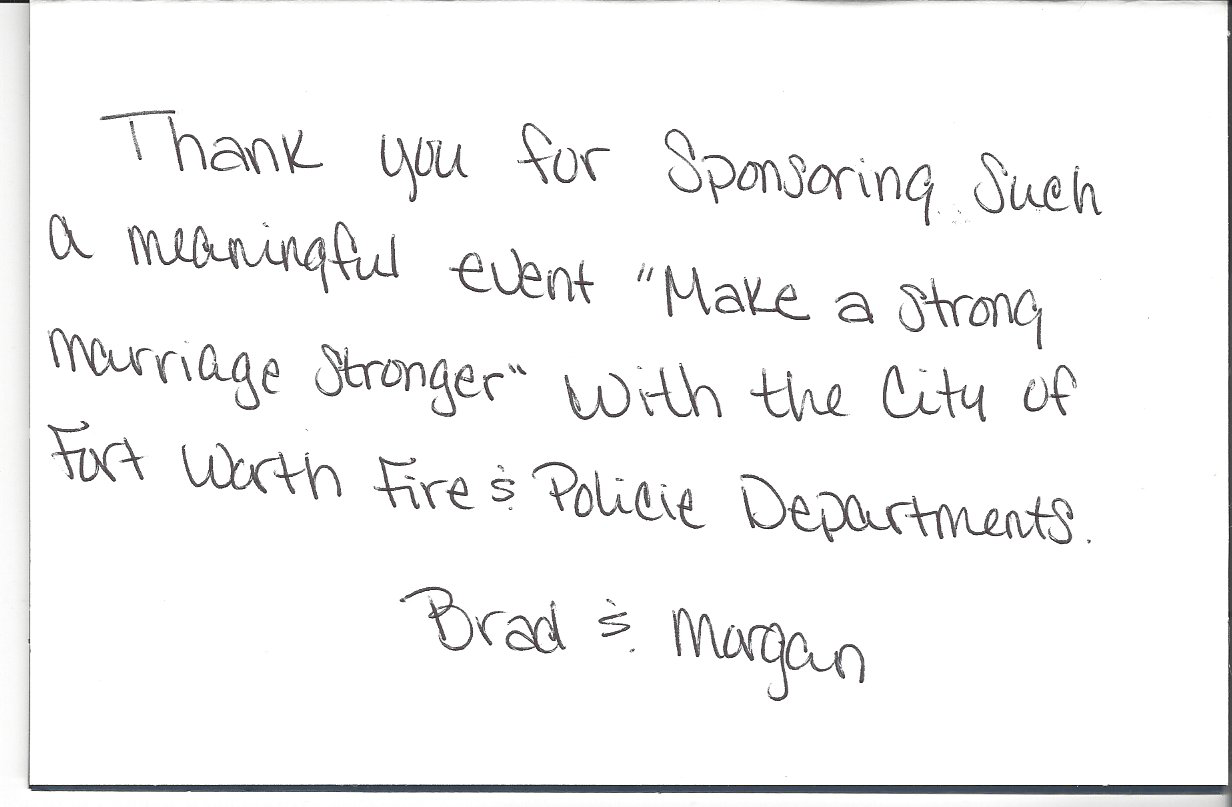 Thank you for Sponsoring Such
a meaningful event "Make a Strong
marriage Stronger" with the City of
Fort Worth Fire & Policie Departments.
Brad & Morgan